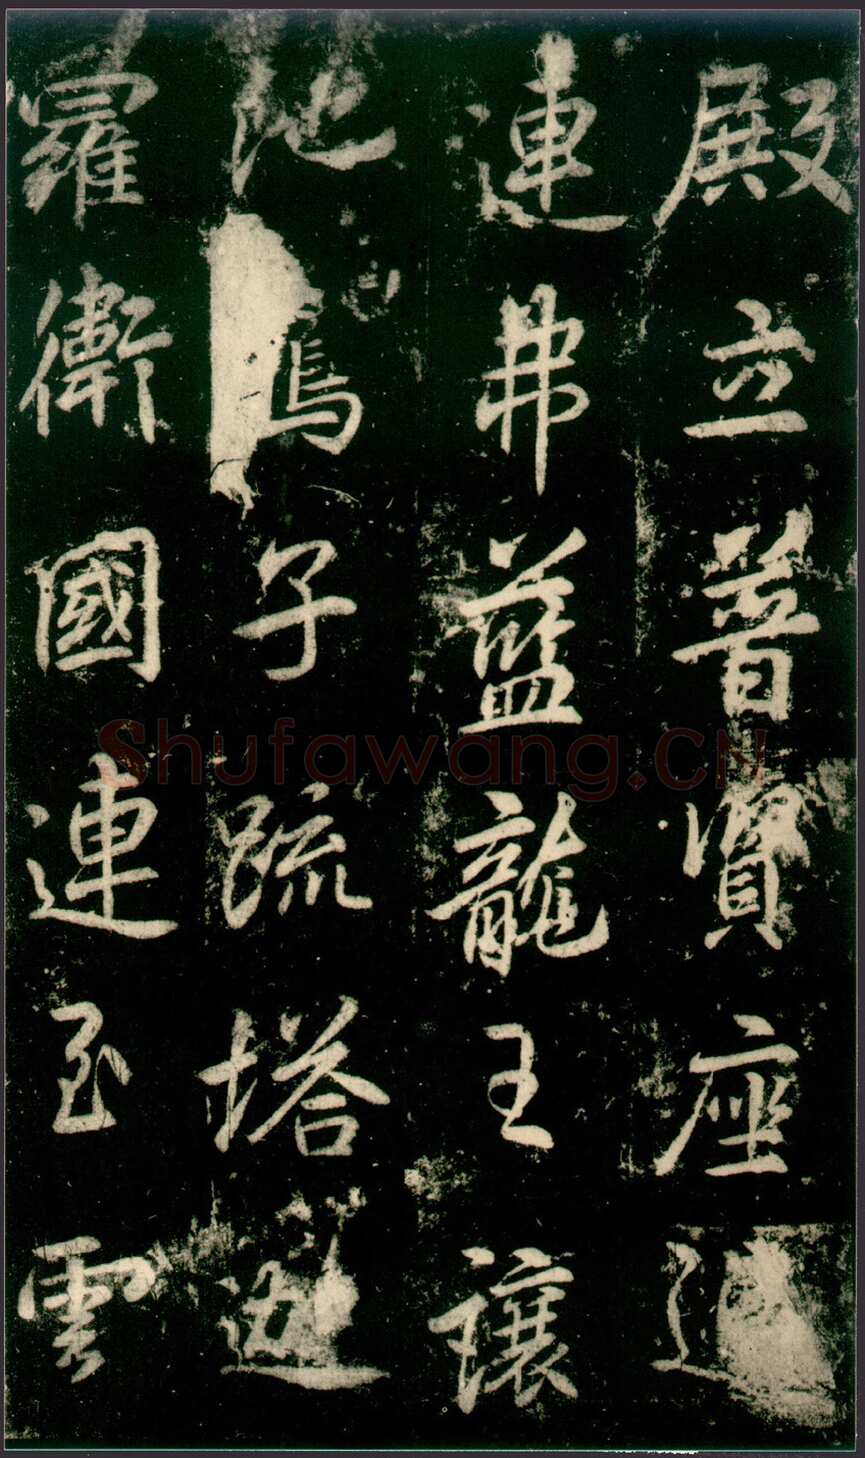 殿立普賢座
連弗藍龍王讓
池子疏塔迦
羅衛國連至雲
Shufawang.CN